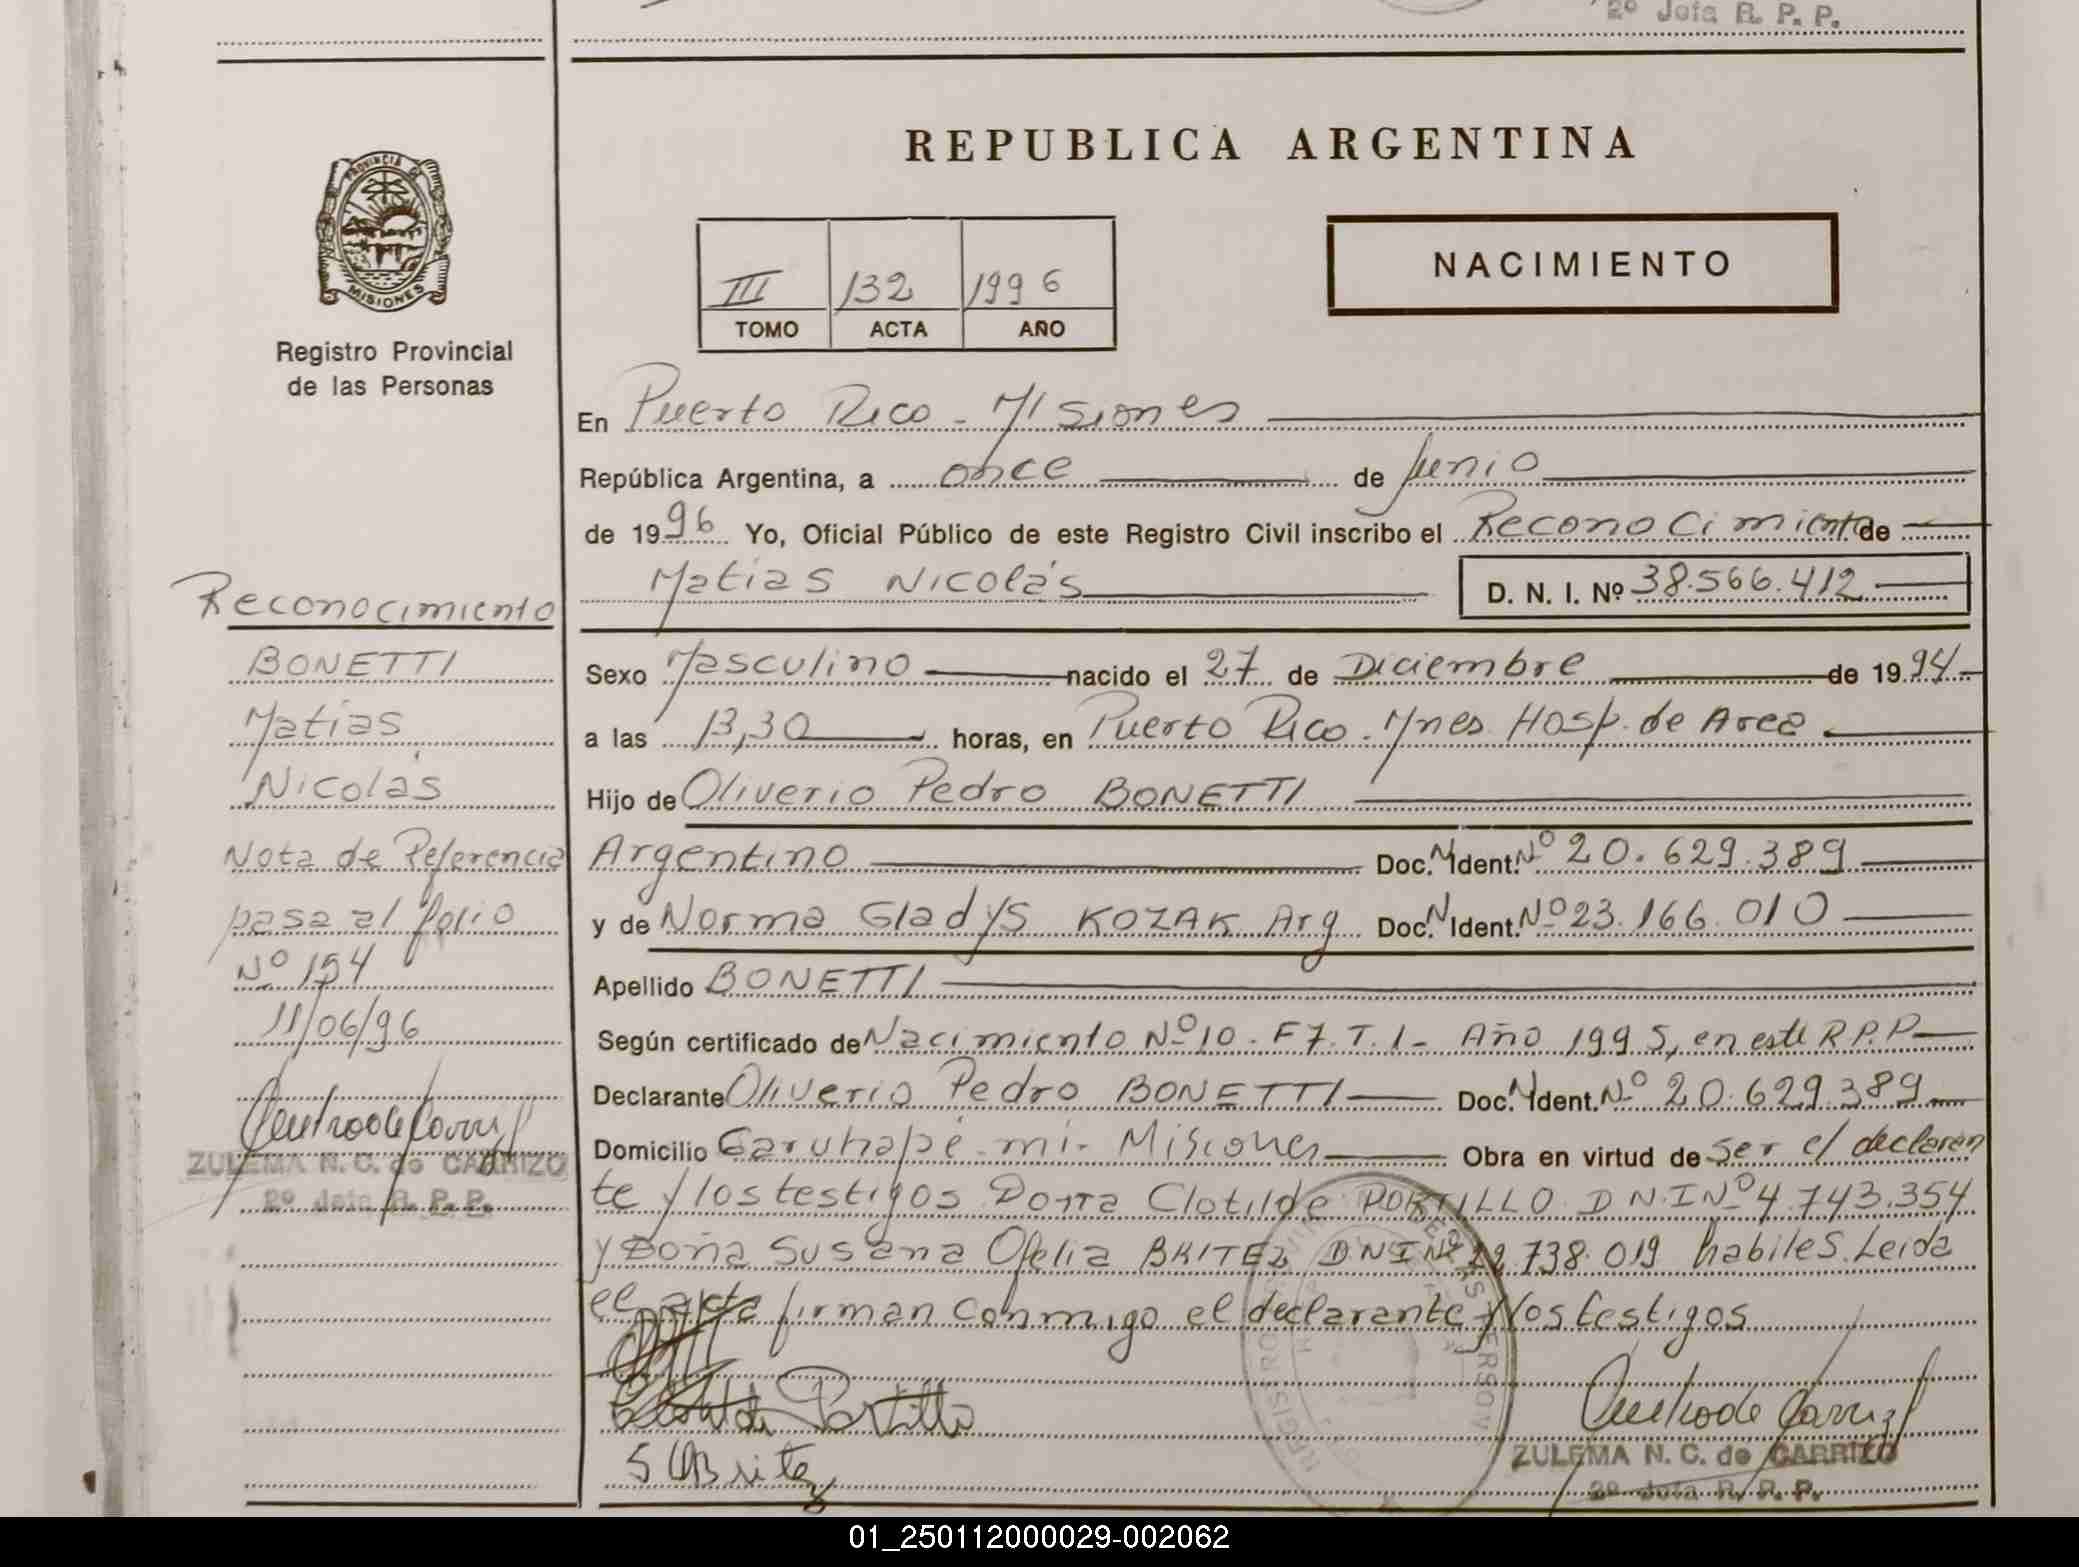 2º Jefa R. P. P.
PROVINCIA DE
MISIONES
Registro Provincial
de las Personas
REPUBLICA ARGENTINA
III 132 1996
TOMO ACTA AÑO
NACIMIENTO
En Puerto Rico - Misiones
República Argentina, a once de Junio
de 1996 Yo, Oficial Público de este Registro Civil inscribo el Reconocimiento de
Matias Nicolás D. N. I. Nº 38.566.412
Sexo Masculino nacido el 27 de Diciembre de 1994
a las 13,30 horas, en Puerto Rico - Mnes. Hosp. de Area
Hijo de Oliverio Pedro BONETTI
Argentino Doc. N. Ident. Nº 20.629.389
y de Norma Gladys KOZAK Arg Doc. N. Ident. Nº 23.166.010
Apellido BONETTI
Según certificado de Nacimiento Nº 10 - F 7. T. 1 - Año 1995, en este R.P.P
Declarante Oliverio Pedro BONETTI Doc. N. Ident. Nº 20.629.389
Domicilio Garuhapé - mi - Misiones Obra en virtud de ser el declaran
te y los testigos Doña Clotilde PORTILLO D N I Nº 4.743.354
y Doña Susana Ofelia BRITEZ D N I Nº 22.738.019 habiles. Leida
el acta firman conmigo el declarante y los testigos
Clotilde Portillo
S O Britez
ZULEMA N. C. de CARRIZO
2º Jefa R. P. P.
Reconocimiento
BONETTI
Matias
Nicolás
Nota de Referencia
pasa al folio
Nº 154
11/06/96
ZULEMA N. C. de CARRIZO
2º Jefa R. P. P.
01_250112000029-002062